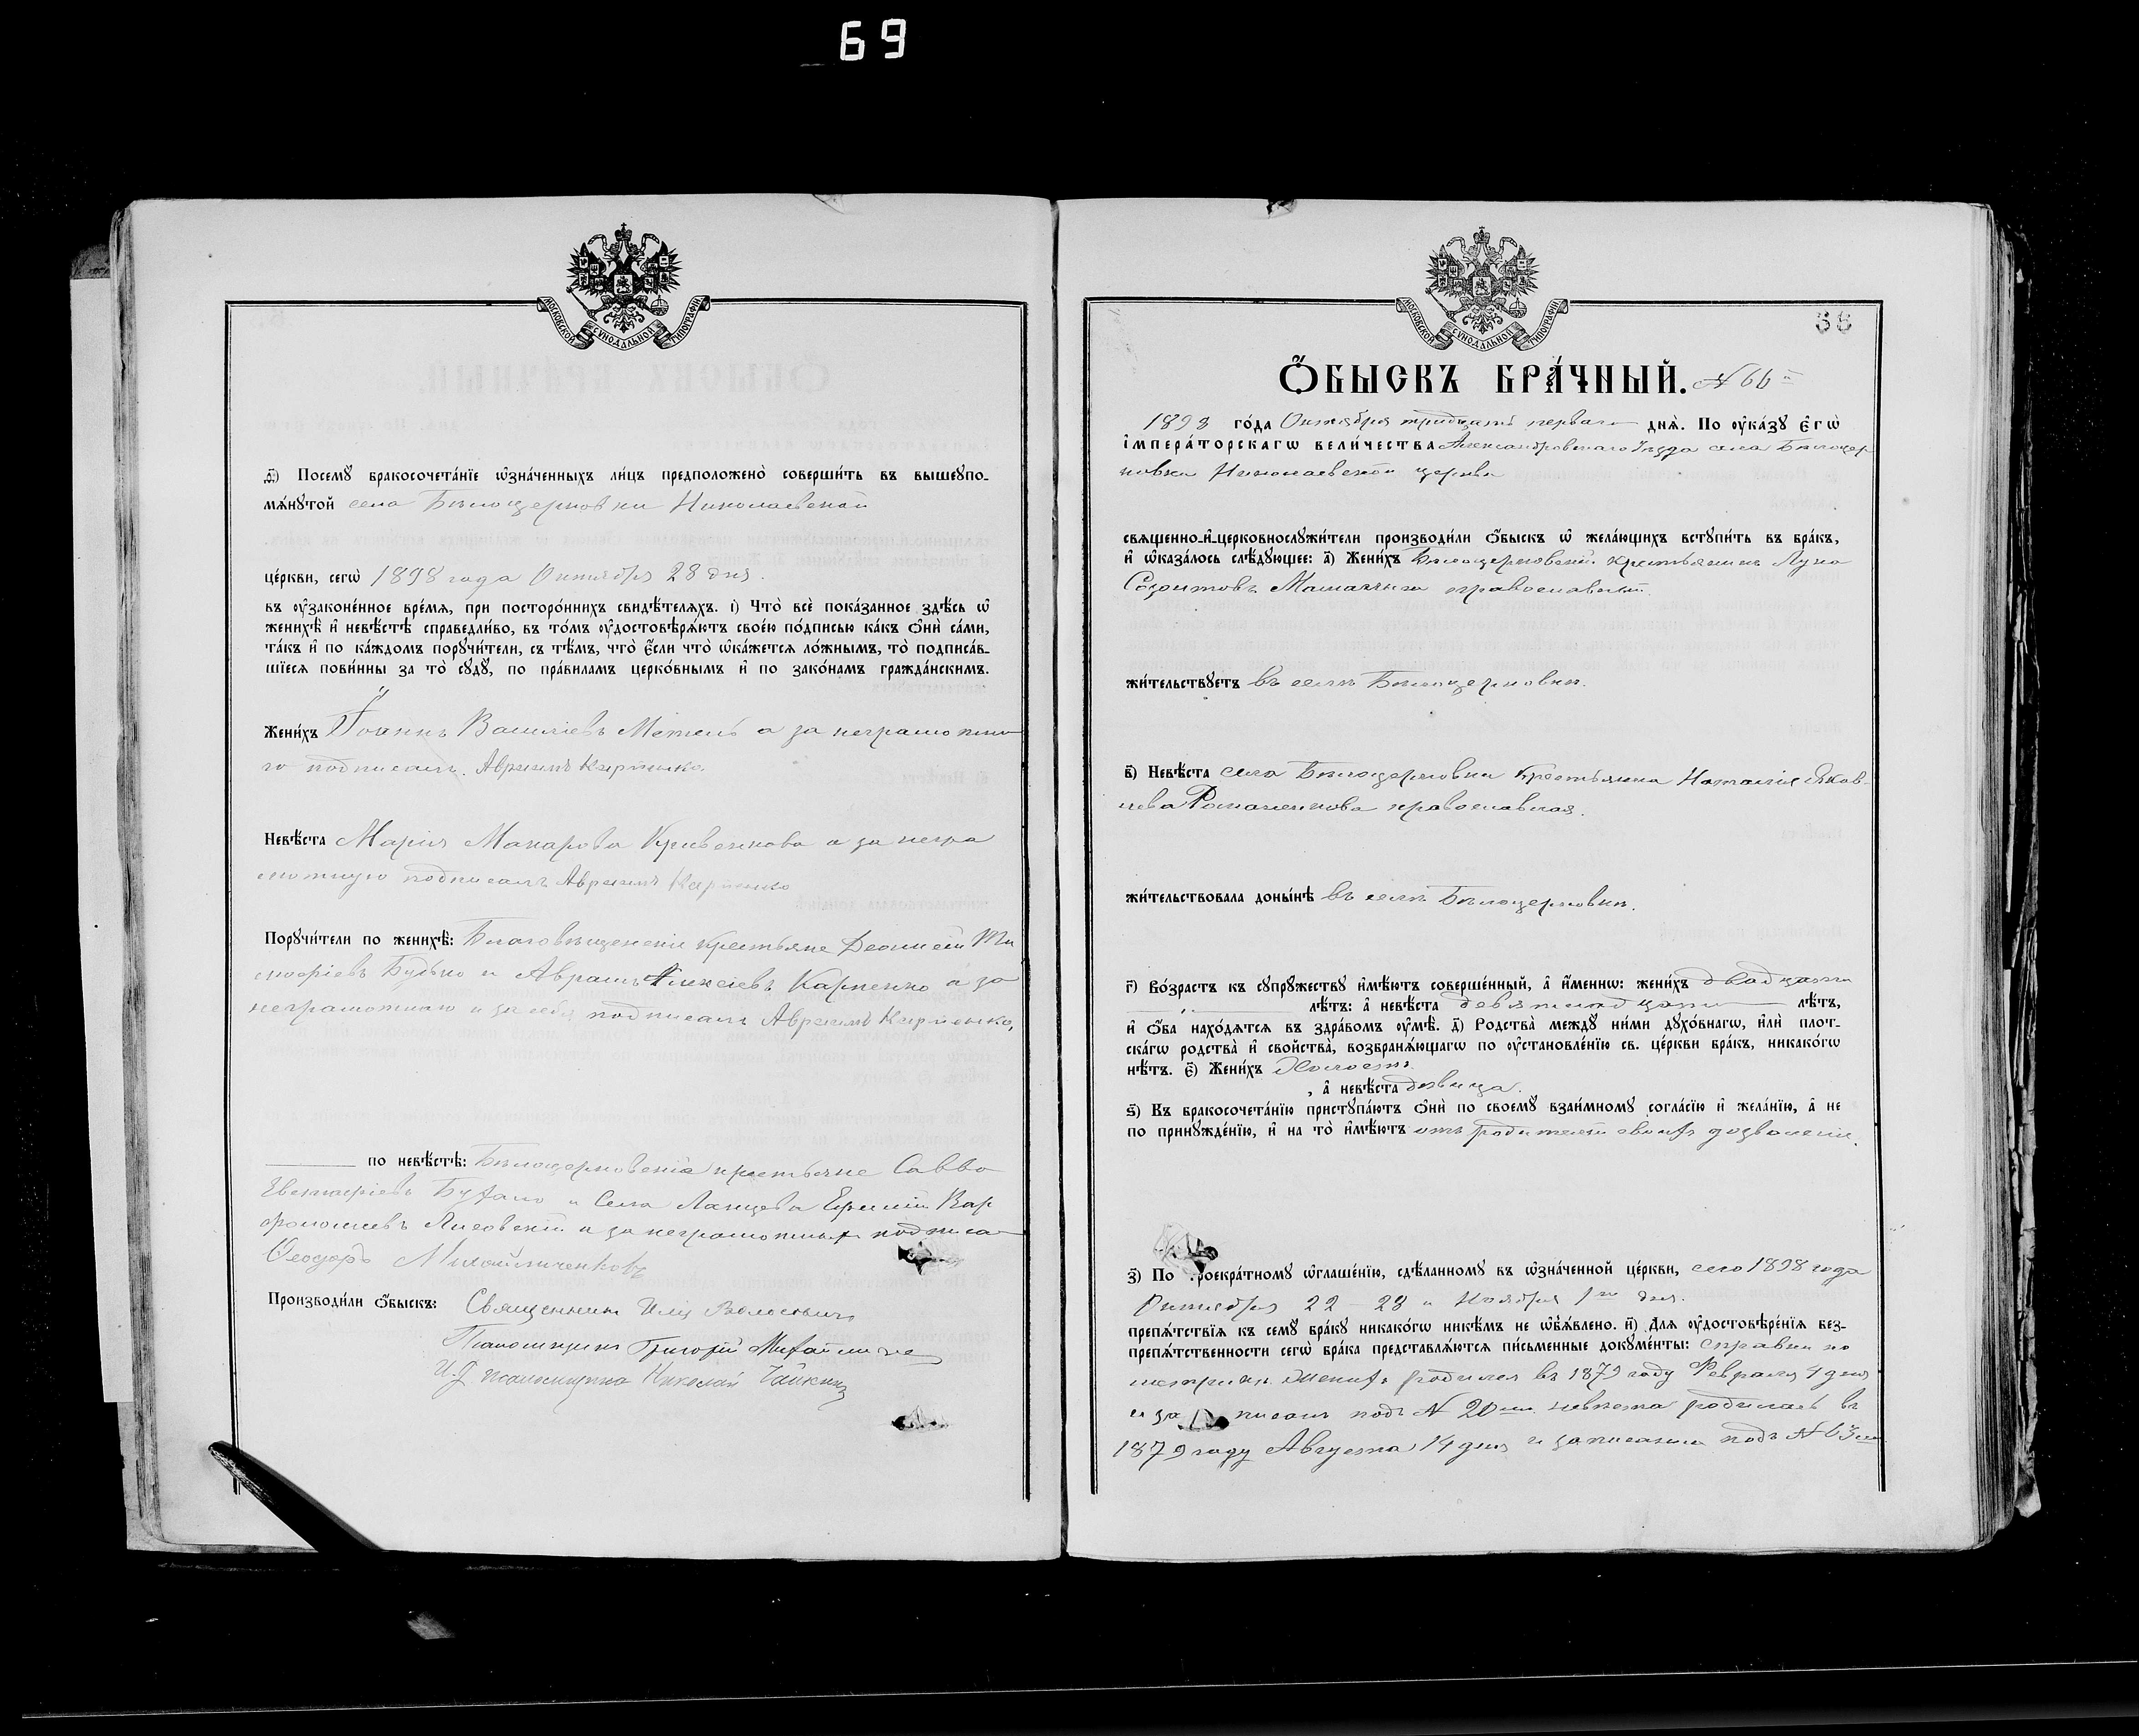 69
МОСКОВСКОЙ СѴНОДАЛЬНОЙ ТИПОГРАФІИ
ѳ҃) Посемꙋ̀ бракосочета́нїе ѡ҆зна́ченныхъ ли́цъ предположено̀ соверши́ть въ вышеꙋпо-
мѧ́нꙋтой села Бѣлоцерковки Николаевской
це́ркви, сегѡ̀ 1898 года Октября 28 дня.
въ ᲂу҆законе́нное вре́мѧ, при посторо́ннихъ свидѣ́телѧхъ. і҃) Что̀ всѐ пока́занное здѣ́сь ѡ҆
женихѣ̀ и҆ невѣ́стѣ справедли́во, въ то́мъ ᲂу҆достовѣрѧ́ютъ свое́ю по́дписью ка́къ ѻ҆нѝ са́ми,
та́къ и҆ по ка́ждомъ порꙋчи́тели, съ тѣ́мъ, что̀ є҆́сли что̀ ѡ҆ка́жетсѧ ло́жнымъ, то̀ подписа́в-
шїесѧ пови́нны за то̀ сꙋдꙋ̀, по пра́виламъ церко́внымъ и҆ по зако́намъ гражда́нскимъ.
Жени́хъ Іоаннъ Василіевъ а за неграмотна
го подписалъ. Аврамъ Карпенко
Невѣ́ста Марія Макарова Кривенкова а за негра
мотную подписалъ Аврамъ Карпенко
Порꙋчи́тели по женихѣ̀: Благовѣщенскіе крестьяне Ти
моѳіевъ Будько и Аврамъ Алексіевъ Карпенко а за
неграмотнаго и за себя подписалъ Аврамъ Карпенко,
по невѣ́стѣ: Бѣлоцерковскіе крестьяне Савва
и села Вар
ѳоломеевъ а за неграмотныхъ подписа
Ѳеодоръ Михайличенковъ
Производи́ли ѻ҆́быскъ: Священникъ Илія
Псаломщикъ Григорій
И. д. псаломщика Николай Чайкинъ
МОСКОВСКОЙ СѴНОДАЛЬНОЙ ТИПОГРАФІИ
68
Ѻ҆́БЫСКЪ БРА́ЧНЫЙ. № 66й
1898 го́да Октября тридцать перваго днѧ̀. По ᲂу҆ка́зꙋ є҆гѡ̀
і҆мпера́торскагѡ вели́чества Александровскаго уѣзда села Бѣлоцер
ковки Николаевской церкви
свѧщенно-и҆-церковнослꙋжи́тели производи́ли ѻ҆́быскъ ѡ҆ жела́ющихъ встꙋпи́ть въ бра́къ,
и҆ ѡ҆каза́лось слѣ́дꙋющее: а҃) Жени́хъ Бѣлоцерковскій крестьянинъ Лука
православный.
жи́тельствꙋетъ въ селѣ Бѣлоцерковкѣ.
в҃) Невѣ́ста села Бѣлоцерковки крестьянка Наталія Яков-
лева Романенкова православная.
жи́тельствовала доны́нѣ въ селѣ Бѣлоцерковкѣ.
г҃) Во́зрастъ къ сꙋпрꙋ́жествꙋ и҆мѣ́ютъ соверше́нный, а҆ и҆́меннѡ: жени́хъ двадцати
лѣ́тъ: а҆ невѣ́ста девятнадцати лѣ́тъ,
и҆ ѻ҆́ба нахо́дѧтсѧ въ здра́вомъ ᲂу҆мѣ̀. д҃) Родства̀ междꙋ̀ ни́ми дꙋхо́внагѡ, и҆лѝ плот-
ска́гѡ родства̀ и҆ сво́йства̀, возбранѧ́ющагѡ по ᲂу҆становле́нїю св. це́ркви бра́къ, никако́гѡ
нѣ́тъ. є҃) Жени́хъ Холостъ
, а҆ невѣ́ста дѣвица.
ѕ҃) Къ бракосочета́нїю пристꙋпа́ютъ ѻ҆нѝ по своемꙋ̀ взаи́мномꙋ согла́сїю и҆ жела́нїю, а҆ не
по принꙋжде́нїю, и҆ на то̀ и҆мѣ́ютъ отъ родителей своихъ дозволеніе.
з҃) По троекра́тномꙋ ѡ҆глаше́нїю, сдѣ́ланномꙋ въ ѡ҆зна́ченной це́ркви, сего 1898 года
Октября 22 – 28 и Ноября 1го дня.
препѧ́тствїѧ къ семꙋ̀ бра́кꙋ никако́гѡ никѣ́мъ не ѡ҆б̾ѧ́влено. и҃) Длѧ ᲂу҆достовѣре́нїѧ без-
препѧ́тственности сегѡ̀ бра́ка представлѧ́ютсѧ пи́сьменные докꙋме́нты: справки по
метрикѣ. Женихъ родился въ 1879 году Февраля 4 дня
и записанъ подъ № 20мъ. невѣста родилась въ
1879 году Августа 14 дня и записана подъ № 63мъ